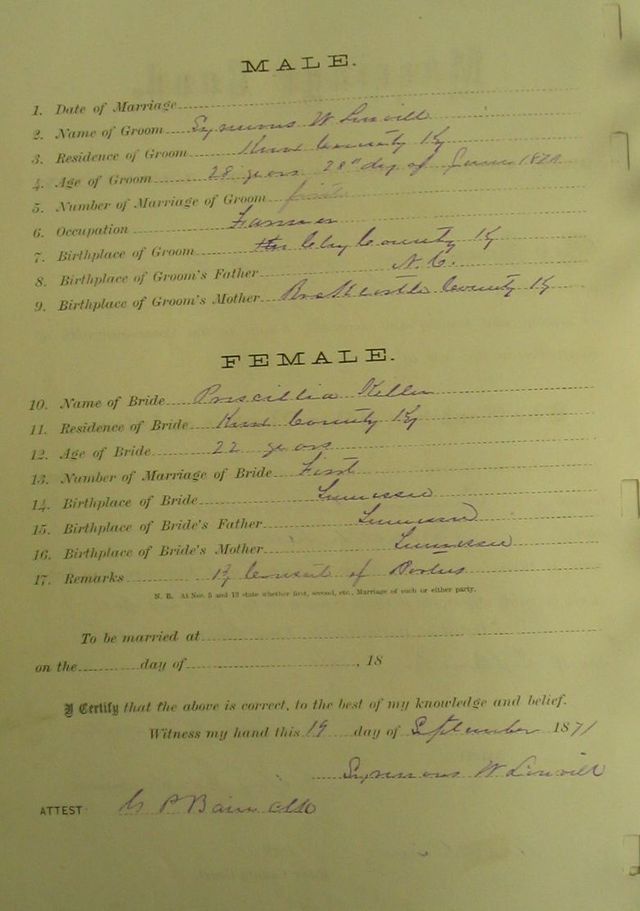 MALE.
1. Date of Marriage
2. Name of Groom Symons W Linvill
3. Residence of Groom Knox County Ky
4. Age of Groom 28 years 28" day of June 1871
5. Number of Marriage of Groom first
6. Occupation Farmer
7. Birthplace of Groom Clay County Ky
8. Birthplace of Groom's Father N.C.
9. Birthplace of Groom's Mother Rockcastle County Ky
FEMALE.
10. Name of Bride Priscillia
11. Residence of Bride Knox County Ky
12. Age of Bride 22 years
13. Number of Marriage of Bride First
14. Birthplace of Bride Tennessee
15. Birthplace of Bride's Father Tennessee
16. Birthplace of Bride's Mother Tennessee
17. Remarks By Consent of Parties
N. B. At Nos. 5 and 13 state whether first, second, etc., Marriage of such or either party.
To be married at
on the day of , 18
I Certify that the above is correct, to the best of my knowledge and belief.
Witness my hand this 19 day of September 1871
Symons W Linvill
ATTEST: